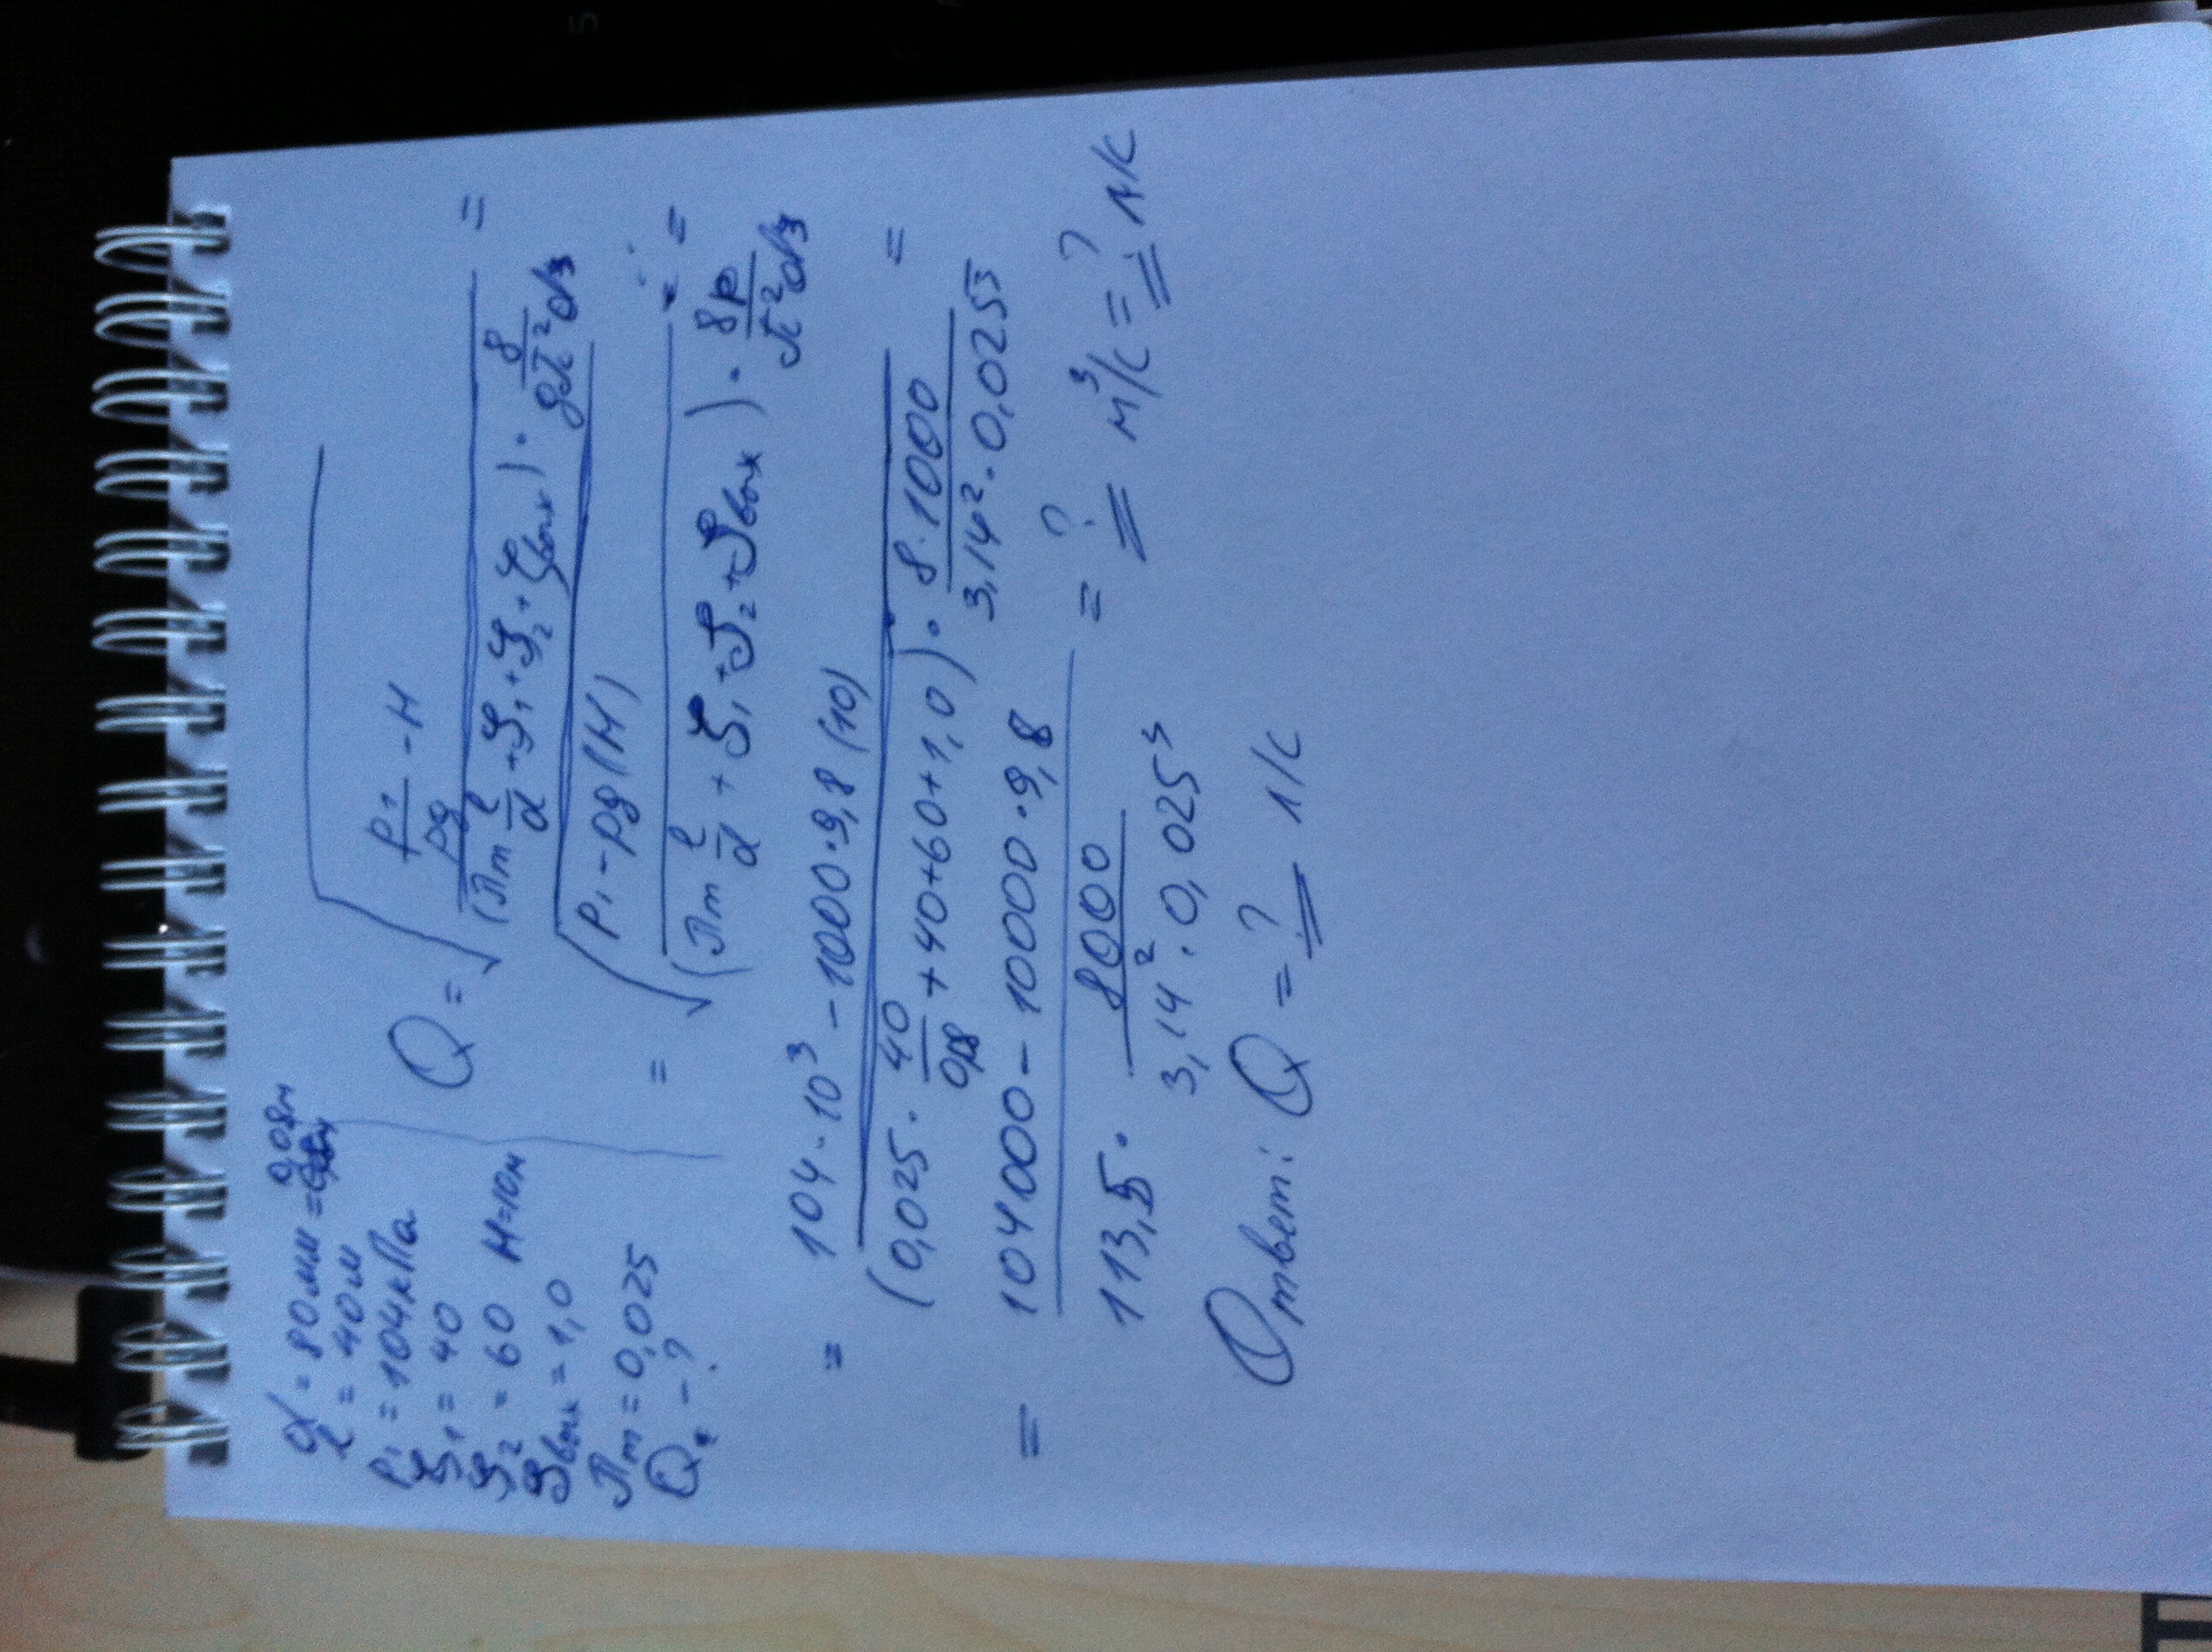 d = 80мм = 0,08м
l = 40м
P₁ = 104кПа
ζ₁ = 40
ζ₂ = 60 H=10м
ζвых = 1,0
λт = 0,025
Q - ?
Q = √((P₁/ρg - H) / ((λт l/d + ζ₁ + ζ₂ + ζвых) · 8/gπ²d³)) =
= √((P₁ - ρg(H)) / ((λт l/d + ζ₁ + ζ₂ + ζвых) · 8ρ/π²d³)) =
= (104·10³ - 1000·9,8(10)) / ((0,025 · 40/0,08 + 40+60+1,0) · 8·1000/3,14²·0,025³) =
= (104000 - 10000·9,8) / (113,5 · 8000/3,14²·0,025³) = ? м³/с = ? л/с
Ответ: Q = ? л/с